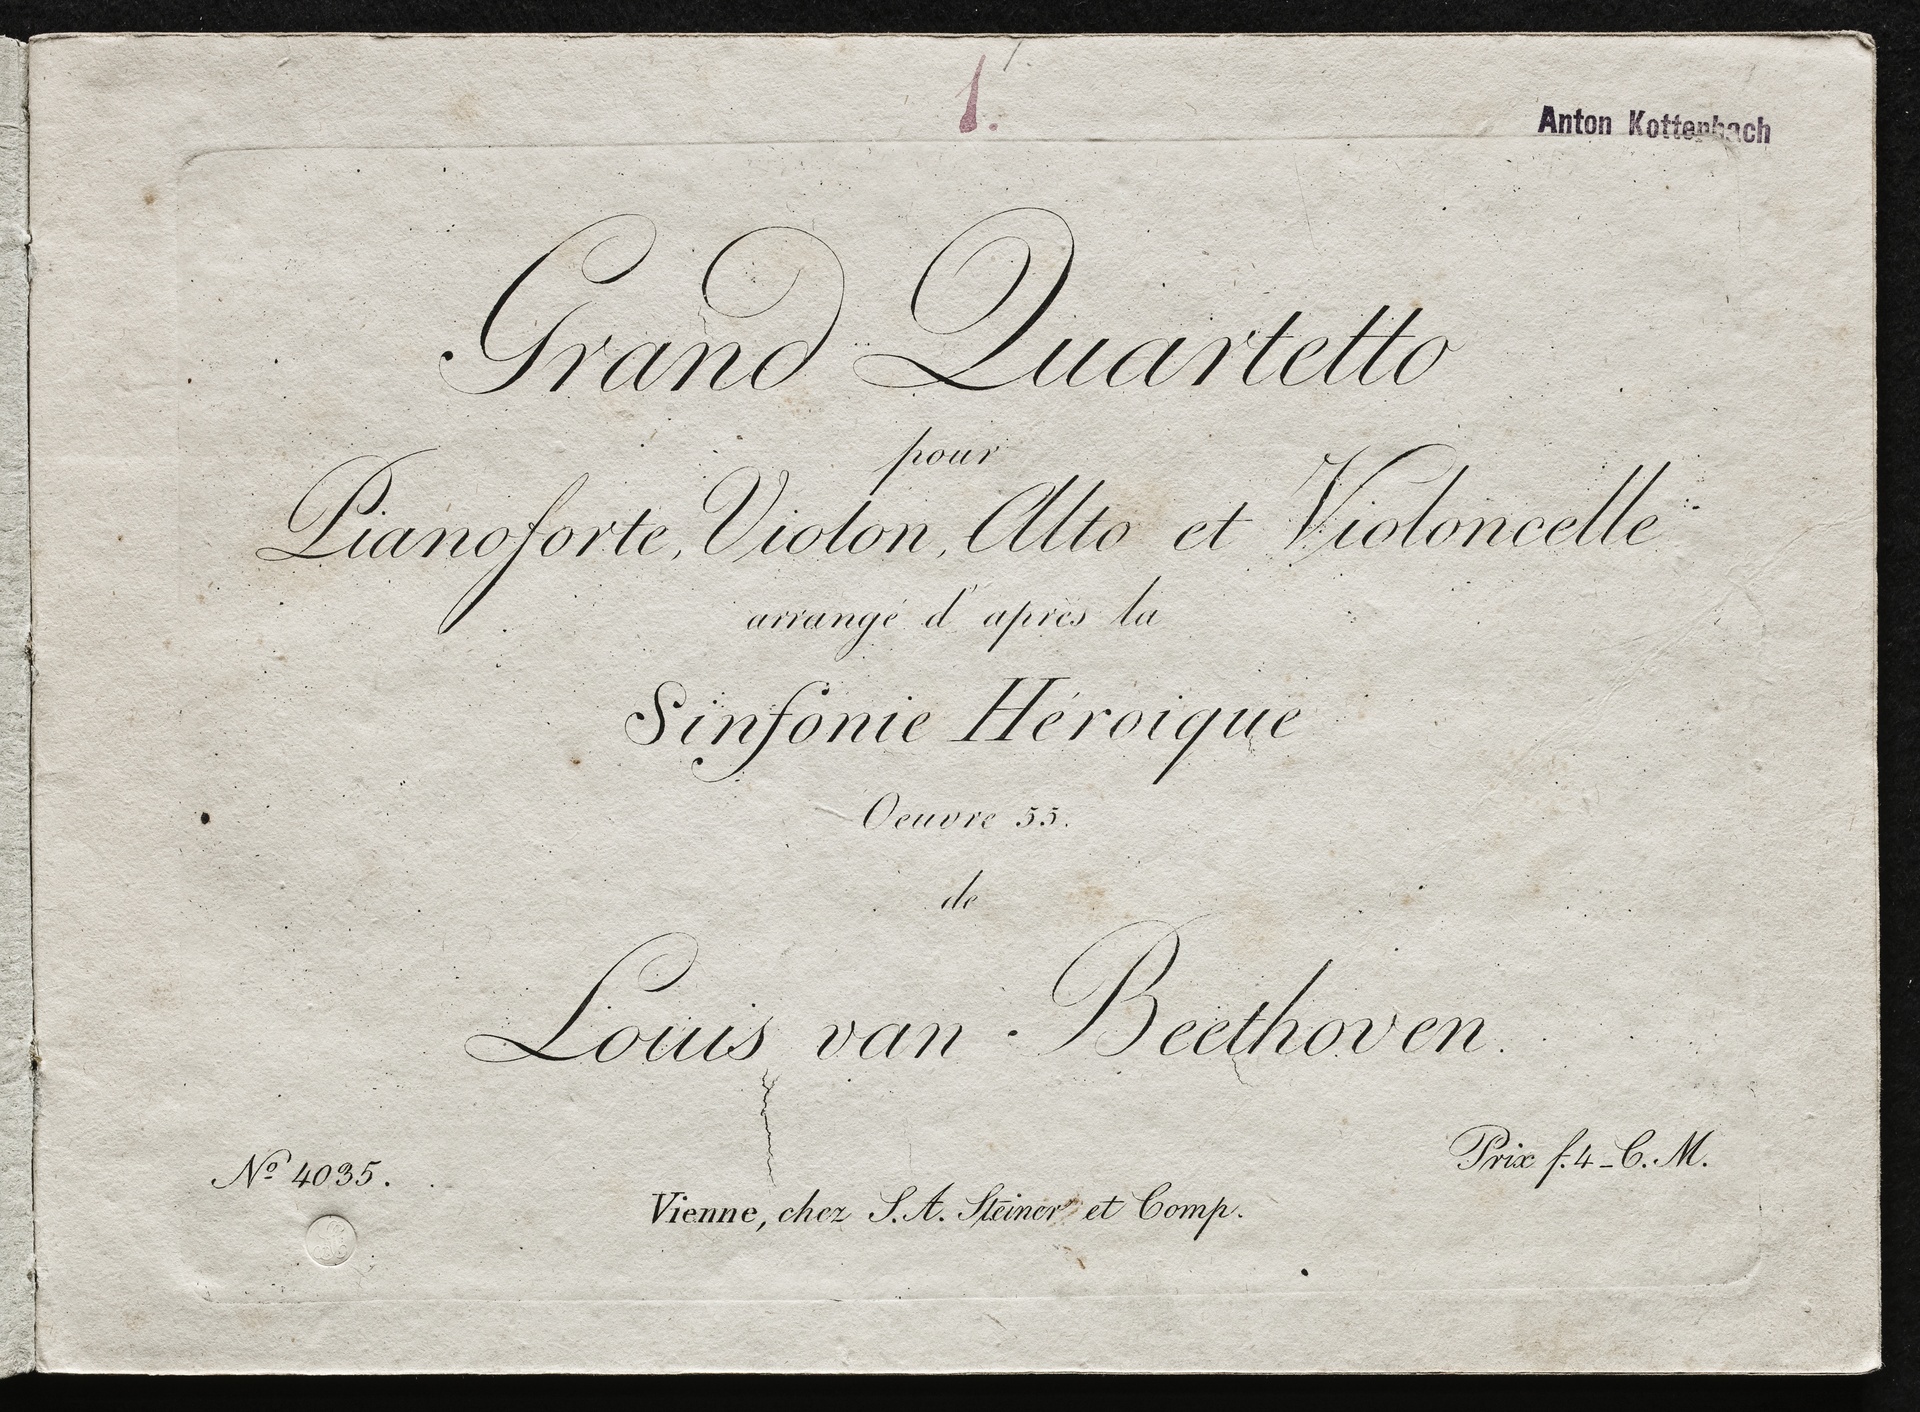 1.
Anton Kottenbach
Grand Quartetto
pour
Pianoforte, Violon, Alto et Violoncelle
arrangé d'après la
Sinfonie Héroique
Oeuvre 55.
de
Louis van Beethoven.
No 4035.
Prix f. 4 - C. M.
Vienne, chez S. A. Steiner et Comp.